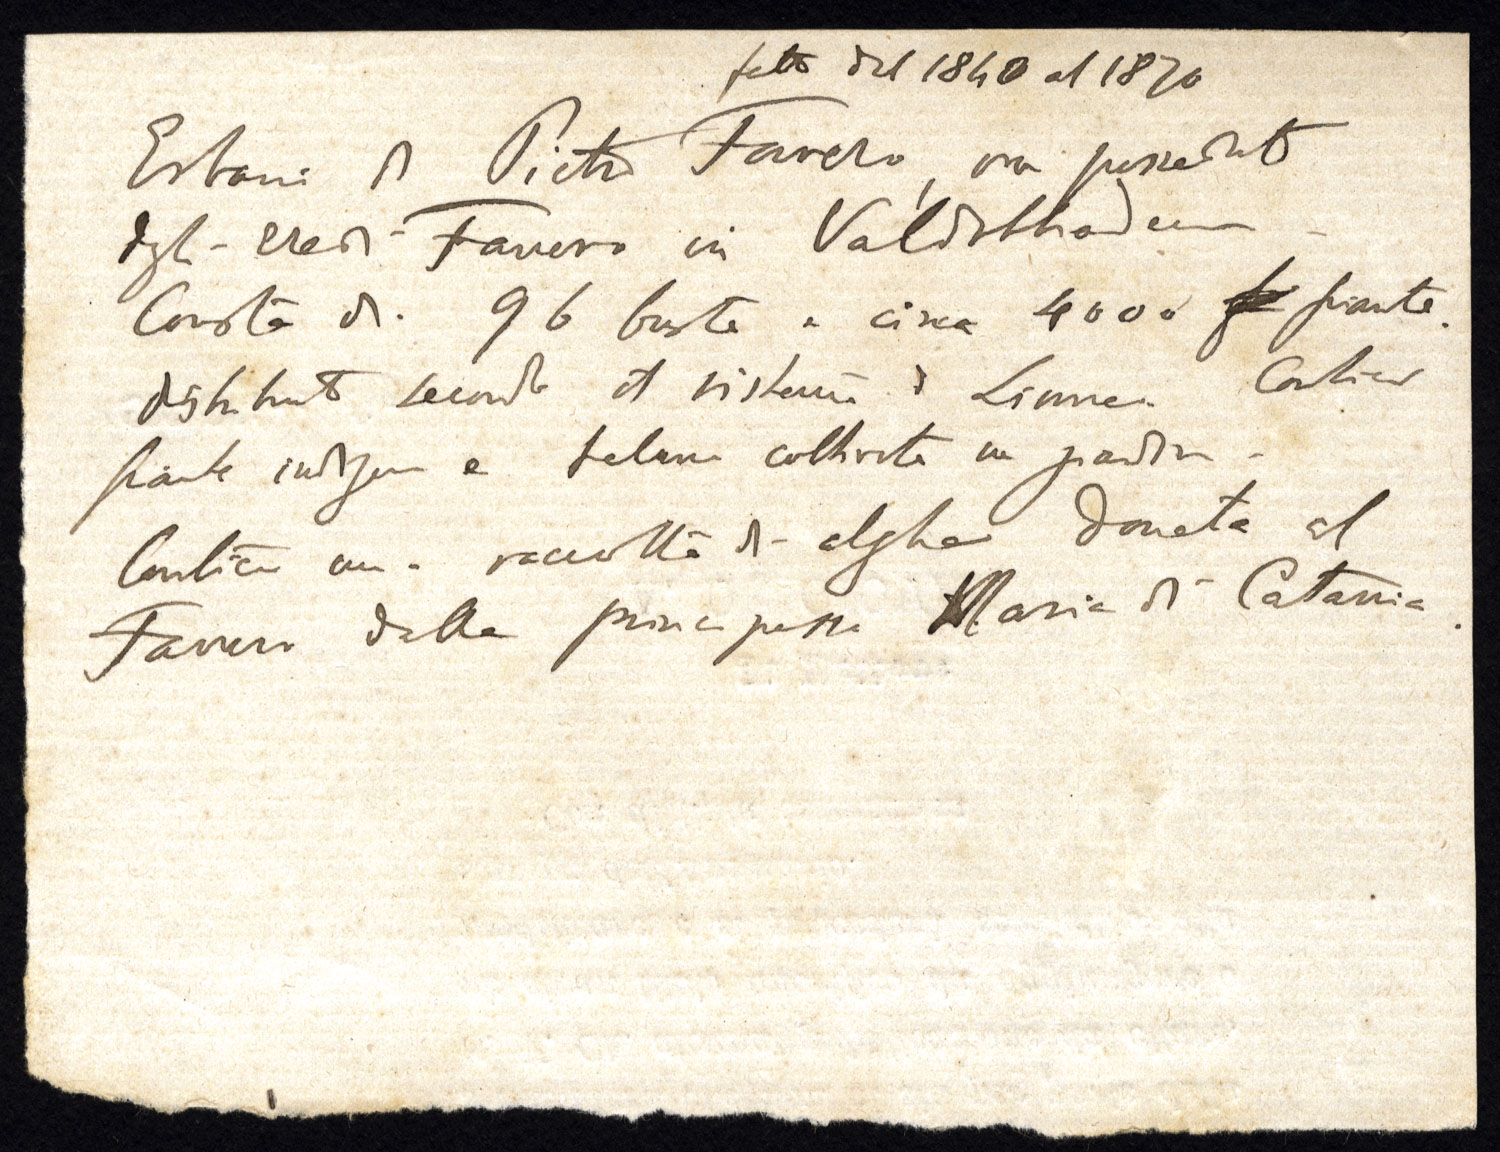 fatto dal 1840 al 1870
Erbario di Pietro Favero, ora posseduto
dagli eredi Favero in Valdobbiadene -
Consta di 96 buste e circa 4000 piante.
distribuite secondo il sistema di Linneo. Contiene
piante indigene e talune coltivate in giardini -
Contiene una raccolta di alghe donata al
Favero dalla principessa Maria di Catania.